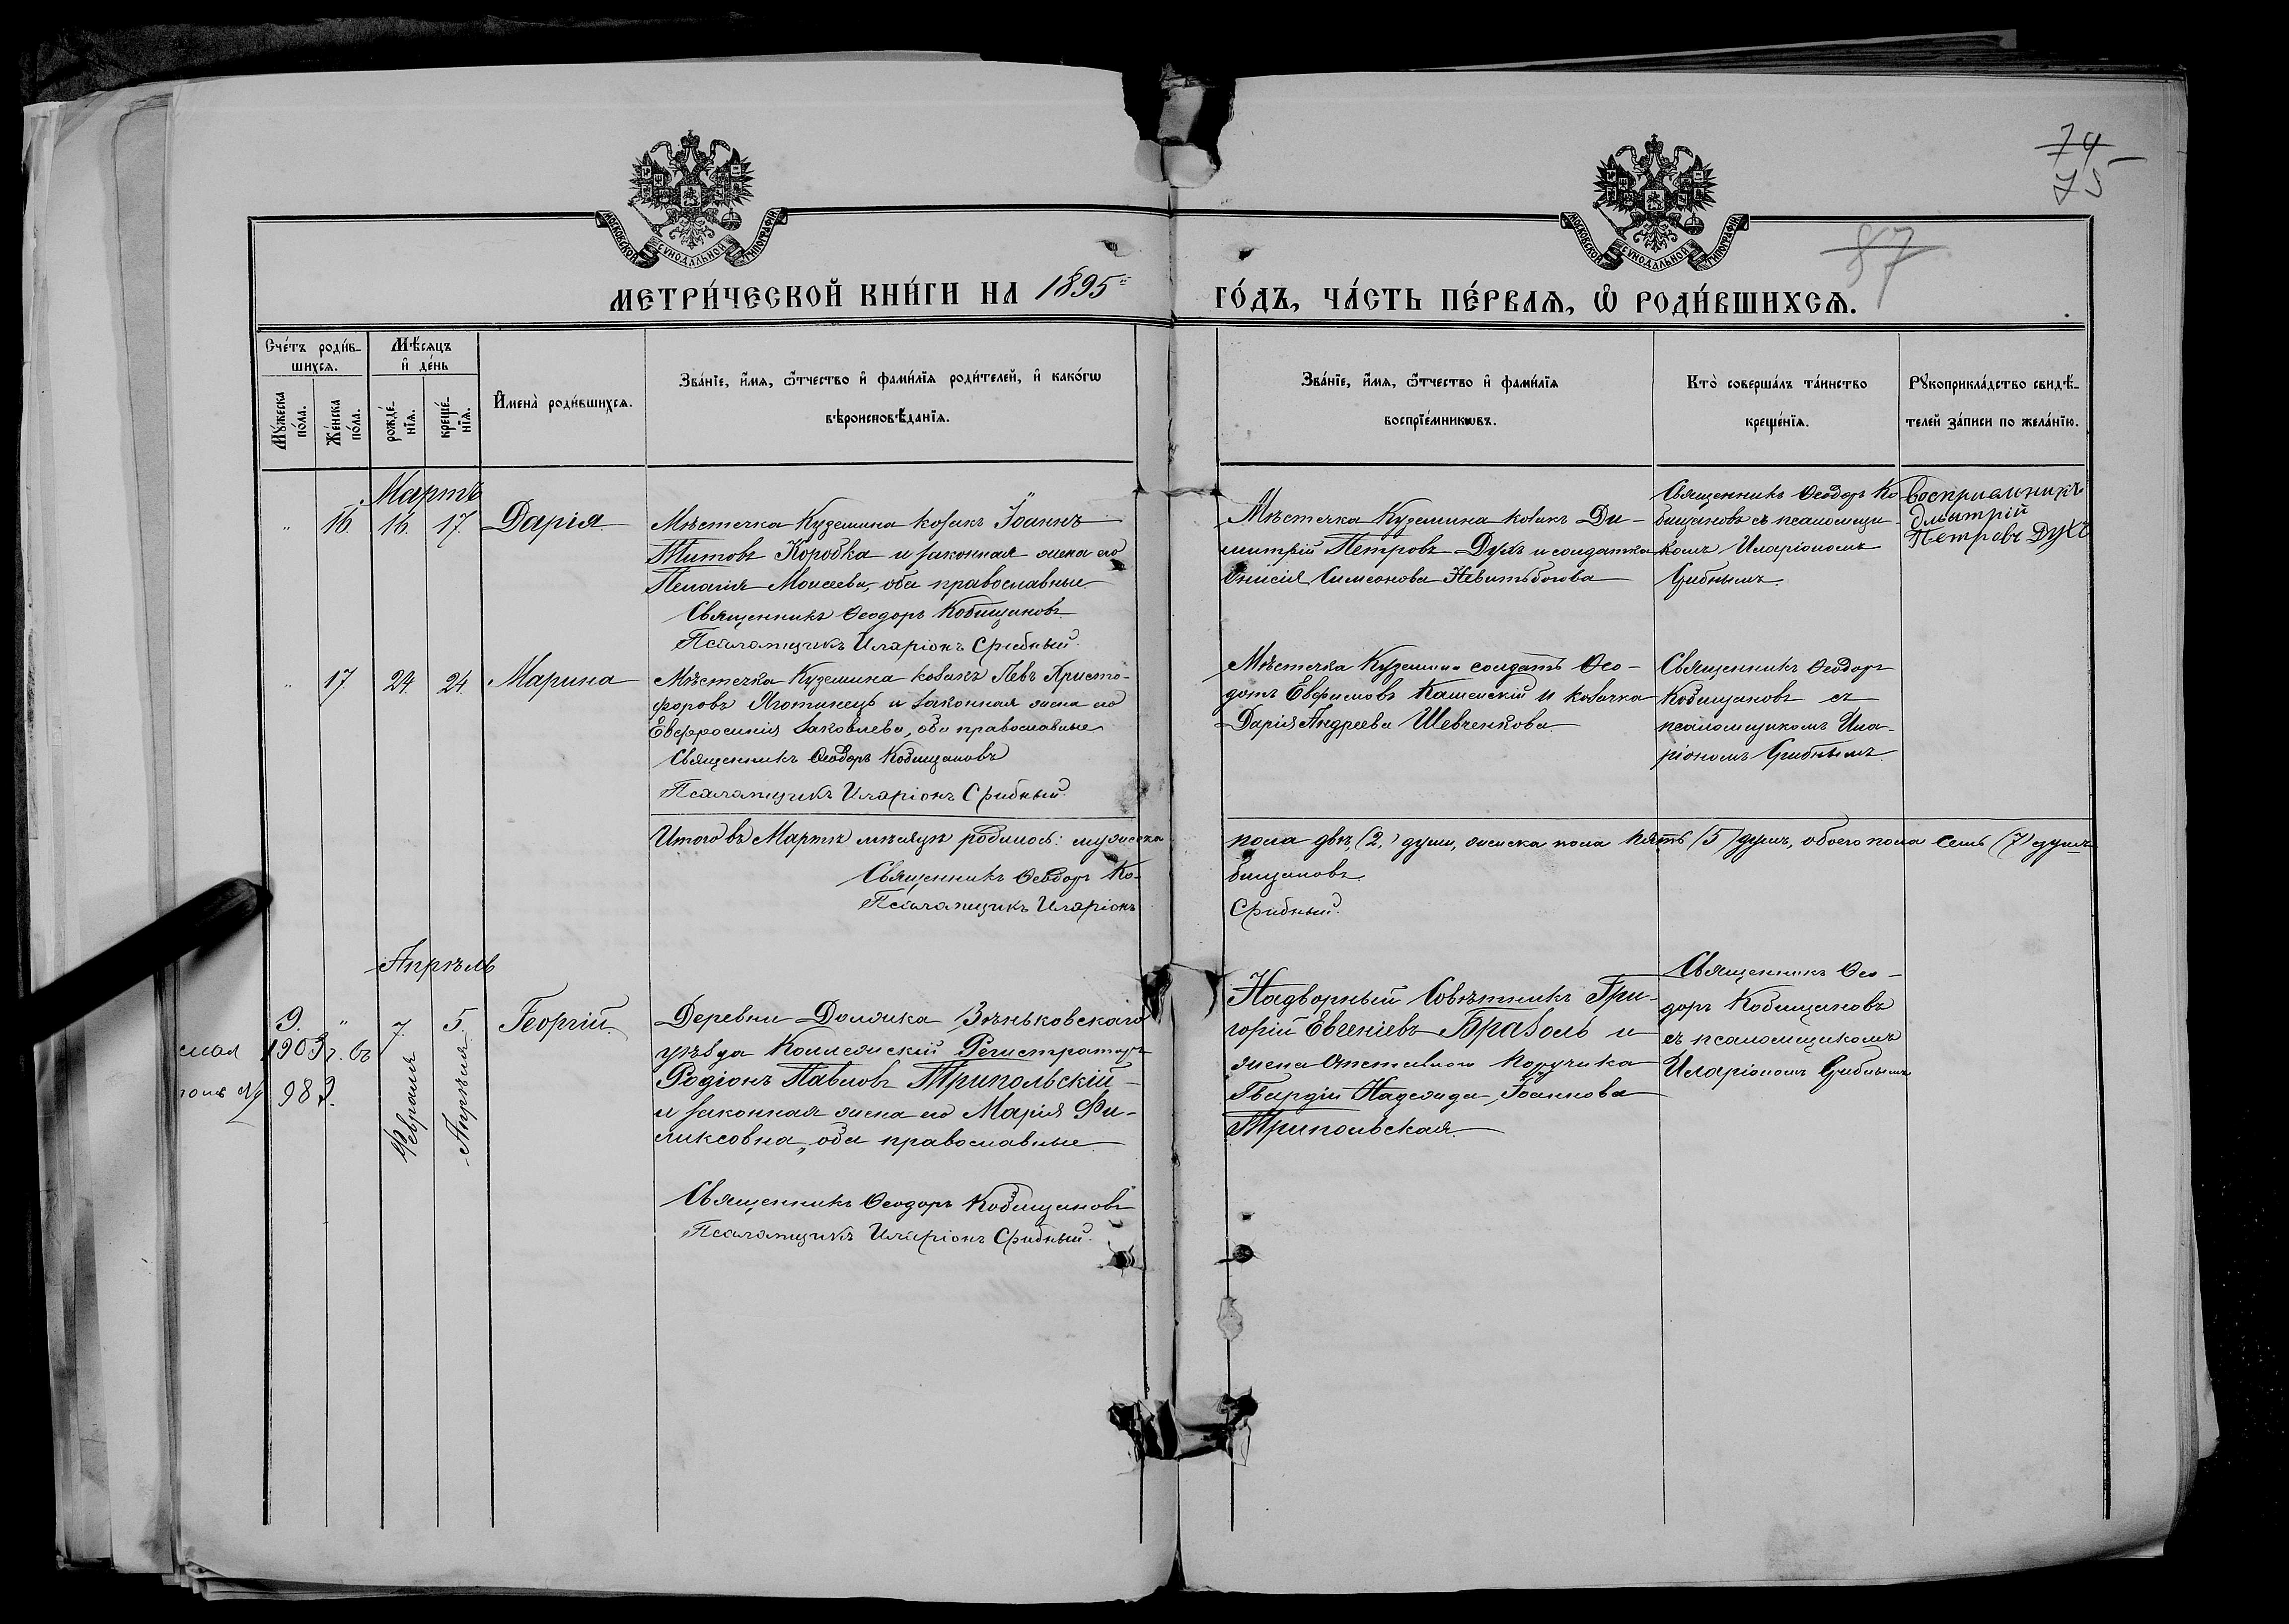 74
75
87
МОСКОВСКОЙ СУНОДАЛЬНОЙ ТИПОГРАФІИ
МОСКОВСКОЙ СУНОДАЛЬНОЙ ТИПОГРАФІИ
МЕТРИ́ЧЕСКОЙ КНИ́ГИ НА 1895 ГО́ДЪ, ЧА́СТЬ ПЕ́РВАѦ, Ѡ҆ РОДИ́ВШИХСѦ.
Сче́тъ роди́в-
шихсѧ.
Му́жеска по́ла.
Же́нска по́ла.
Мѣ́сѧцъ
и҆ де́нь
рожде́-
нїѧ.
креще́-
нїѧ.
И҆мена̀ роди́вшихсѧ.
Зва́нїе, и҆́мѧ, ѻ҆́тчество и҆ фами́лїѧ роди́телей, и҆ како́гѡ
вѣроисповѣ́данїѧ.
Зва́нїе, и҆́мѧ, ѻ҆́тчество и҆ фами́лїѧ
воспрїе́мникѡвъ.
Кто̀ соверша́лъ та́инство
креще́нїѧ.
Рꙋкоприкла́дство свидѣ́-
телей за́писи по жела́нїю.
Мартъ
" 16. 16. 17. Дарія
Мѣстечка Куземина козакъ Іоаннъ
Титовъ Коробка и законная жена его
Пелагія Моисеева, оба православные
Священникъ Ѳеодоръ Кобищановъ
Псаломщикъ Иларіонъ Срибный.
Мѣстечка Куземина козакъ Ди-
митрій Петровъ Духъ и солдатка
Онисія Симеонова
Священникъ Ѳеодоръ Ко-
бищановъ съ псаломщи-
комъ Иларіономъ
Срибнымъ.
Восприемникъ
Дмытрій
Петровъ Духъ
" 17 24 24 Марина
Мѣстечка Куземина козакъ Левъ Христо-
форовъ Яготинецъ и законная жена его
Евфросинія Іаковлева, оба православные
Священникъ Ѳеодоръ Кобищановъ
Псаломщикъ Иларіонъ Срибный.
Мѣстечка Куземина солдатъ Ѳео-
дотъ Евфимовъ и козачка
Дарія Андреева Шевченкова
Священникъ Ѳеодоръ
Кобищановъ съ
псаломщикомъ Ила-
ріономъ Срибнымъ.
Итого въ Мартѣ мѣсяцѣ родилось: мужеска пола двѣ (2) души, женска пола пять (5) душъ, обоего пола семь (7) душъ
Священникъ Ѳеодоръ Ко-
бищановъ
Псаломщикъ Иларіонъ
Срибный.
Апрѣль
9. " 7 Февраля 5 Апрѣля Георгій.
1903 г. въ
№ 983.
Деревни Должка Зѣньковскаго
уѣзда Коллежскій Регистраторъ
Родіонъ Павловъ Трипольскій
и законная жена его Марія Фи-
ликсовна, оба православные
Священникъ Ѳеодоръ Кобищановъ
Псаломщикъ Иларіонъ Срибный.
Надворный Совѣтникъ Гри-
горій Евгеніевъ Бразоль и
жена Отставного Поручика
Гвардіи Надежда Іоаннова
Трипольская.
Священникъ Ѳео-
доръ Кобищановъ
съ псаломщикомъ
Иларіономъ Срибнымъ